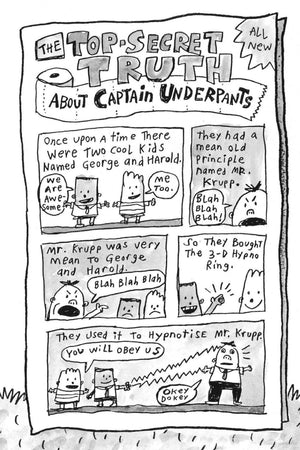 THE TOP-SECRET
TRUTH
ABOUT CAPTAIN UNDERPANTS
ALL
NEW
Once upon a time There
Were Two cool Kids
Named George and Harold.
We
Are
Awe
Some
Me
Too.
They had a
mean old
Principle
named MR.
KRupp.
BLAh
BLAh
BLAh!
Mr. Krupp was very
mean To George
and Harold.
BLAh BLAh BLAh
So They Bought
The 3-D Hypno
Ring.
They used iT to HypnoTise Mr. Krupp
You will obey us
OKey
DoKey